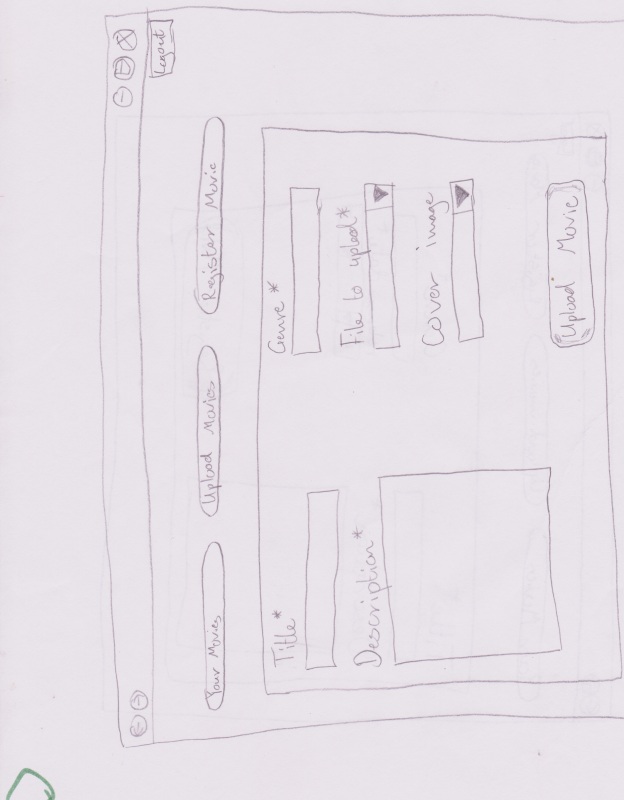 Logout
Your Movies
Upload Movies
Register Movie
Title*
Genre*
Description*
File to upload*
Cover image
Upload Movie